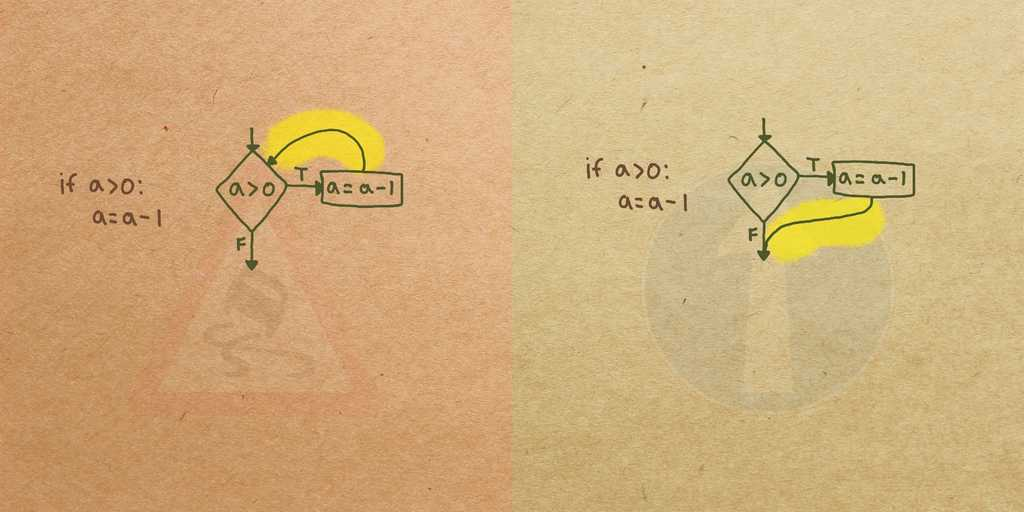 if a>0:
a=a-1
a>0
T
a=a-1
F
if a>0:
a=a-1
a>0
T
a=a-1
F